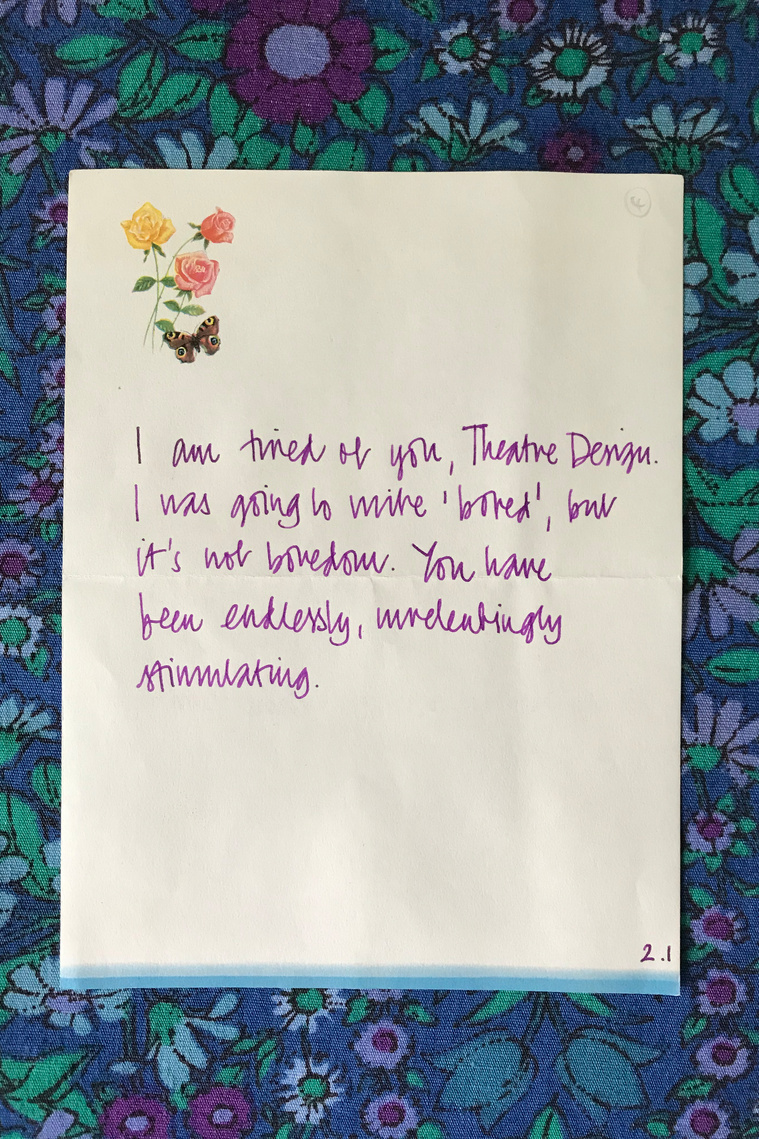 I am tired of you, Theatre Design.
I was going to write 'bored', but
it's not boredom. You have
been endlessly, unrelentingly
stimulating.
2.1